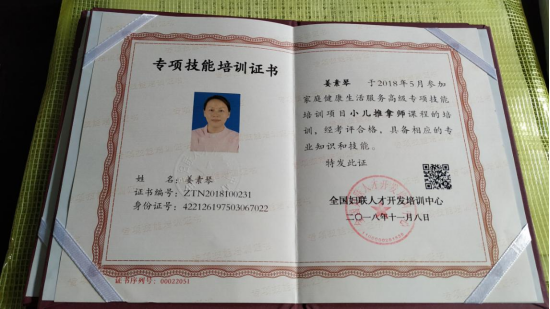 专项技能培训证书
姓 名：姜素琴
证书编号：ZTN2018100231
身份证号：422126197503067022
证书序列号：00022051
姜素琴 于2018年5月参加
家庭健康生活服务高级专项技能
培训项目小儿推拿师课程的培
训，经考评合格，具备相应的专
业知识和技能。
特发此证
全国妇联人才开发培训中心
二〇一八年十一月八日